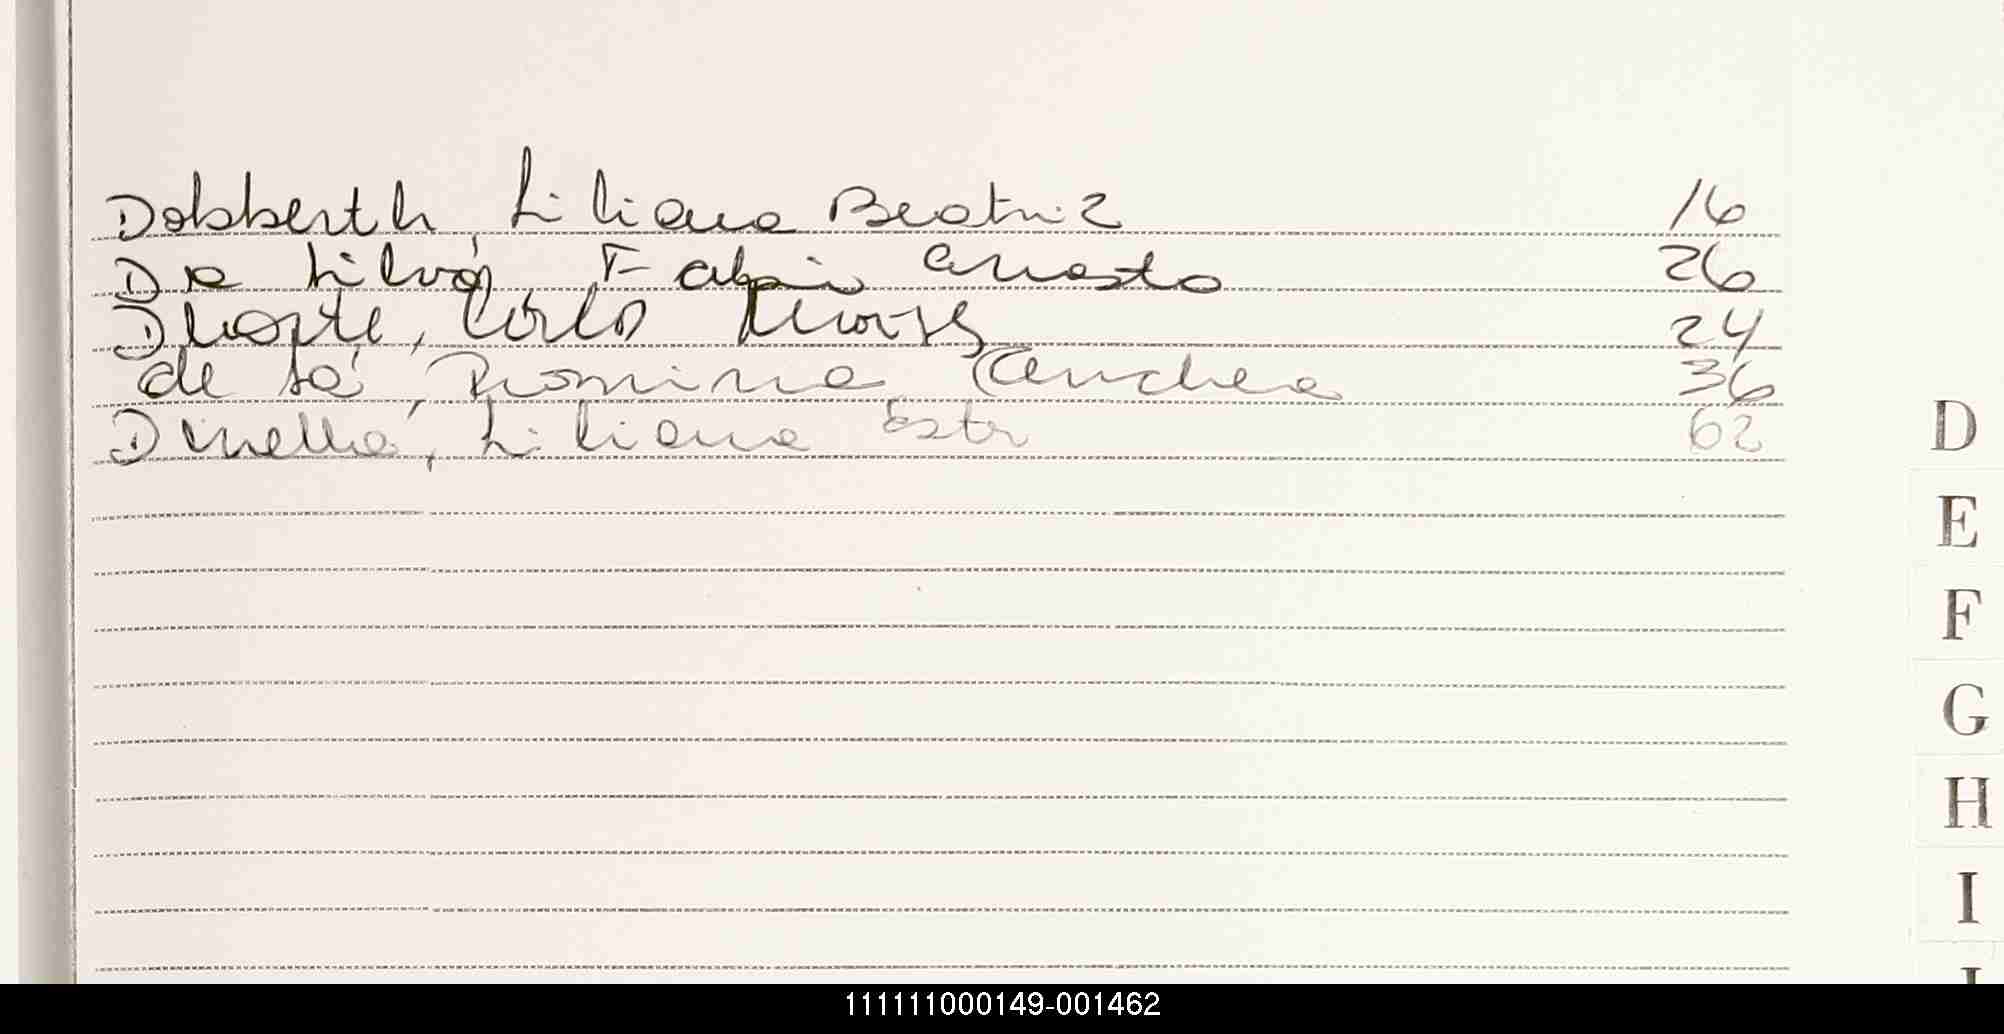 Dobberth, Liliana Beatriz 16
Da Silva, Fabio Ernesto 26
Duarte, Carlos 24
de Sá, Romina Candea 36
Dinella, Liliana Estr 62
D
E
F
G
H
I
111111000149-001462